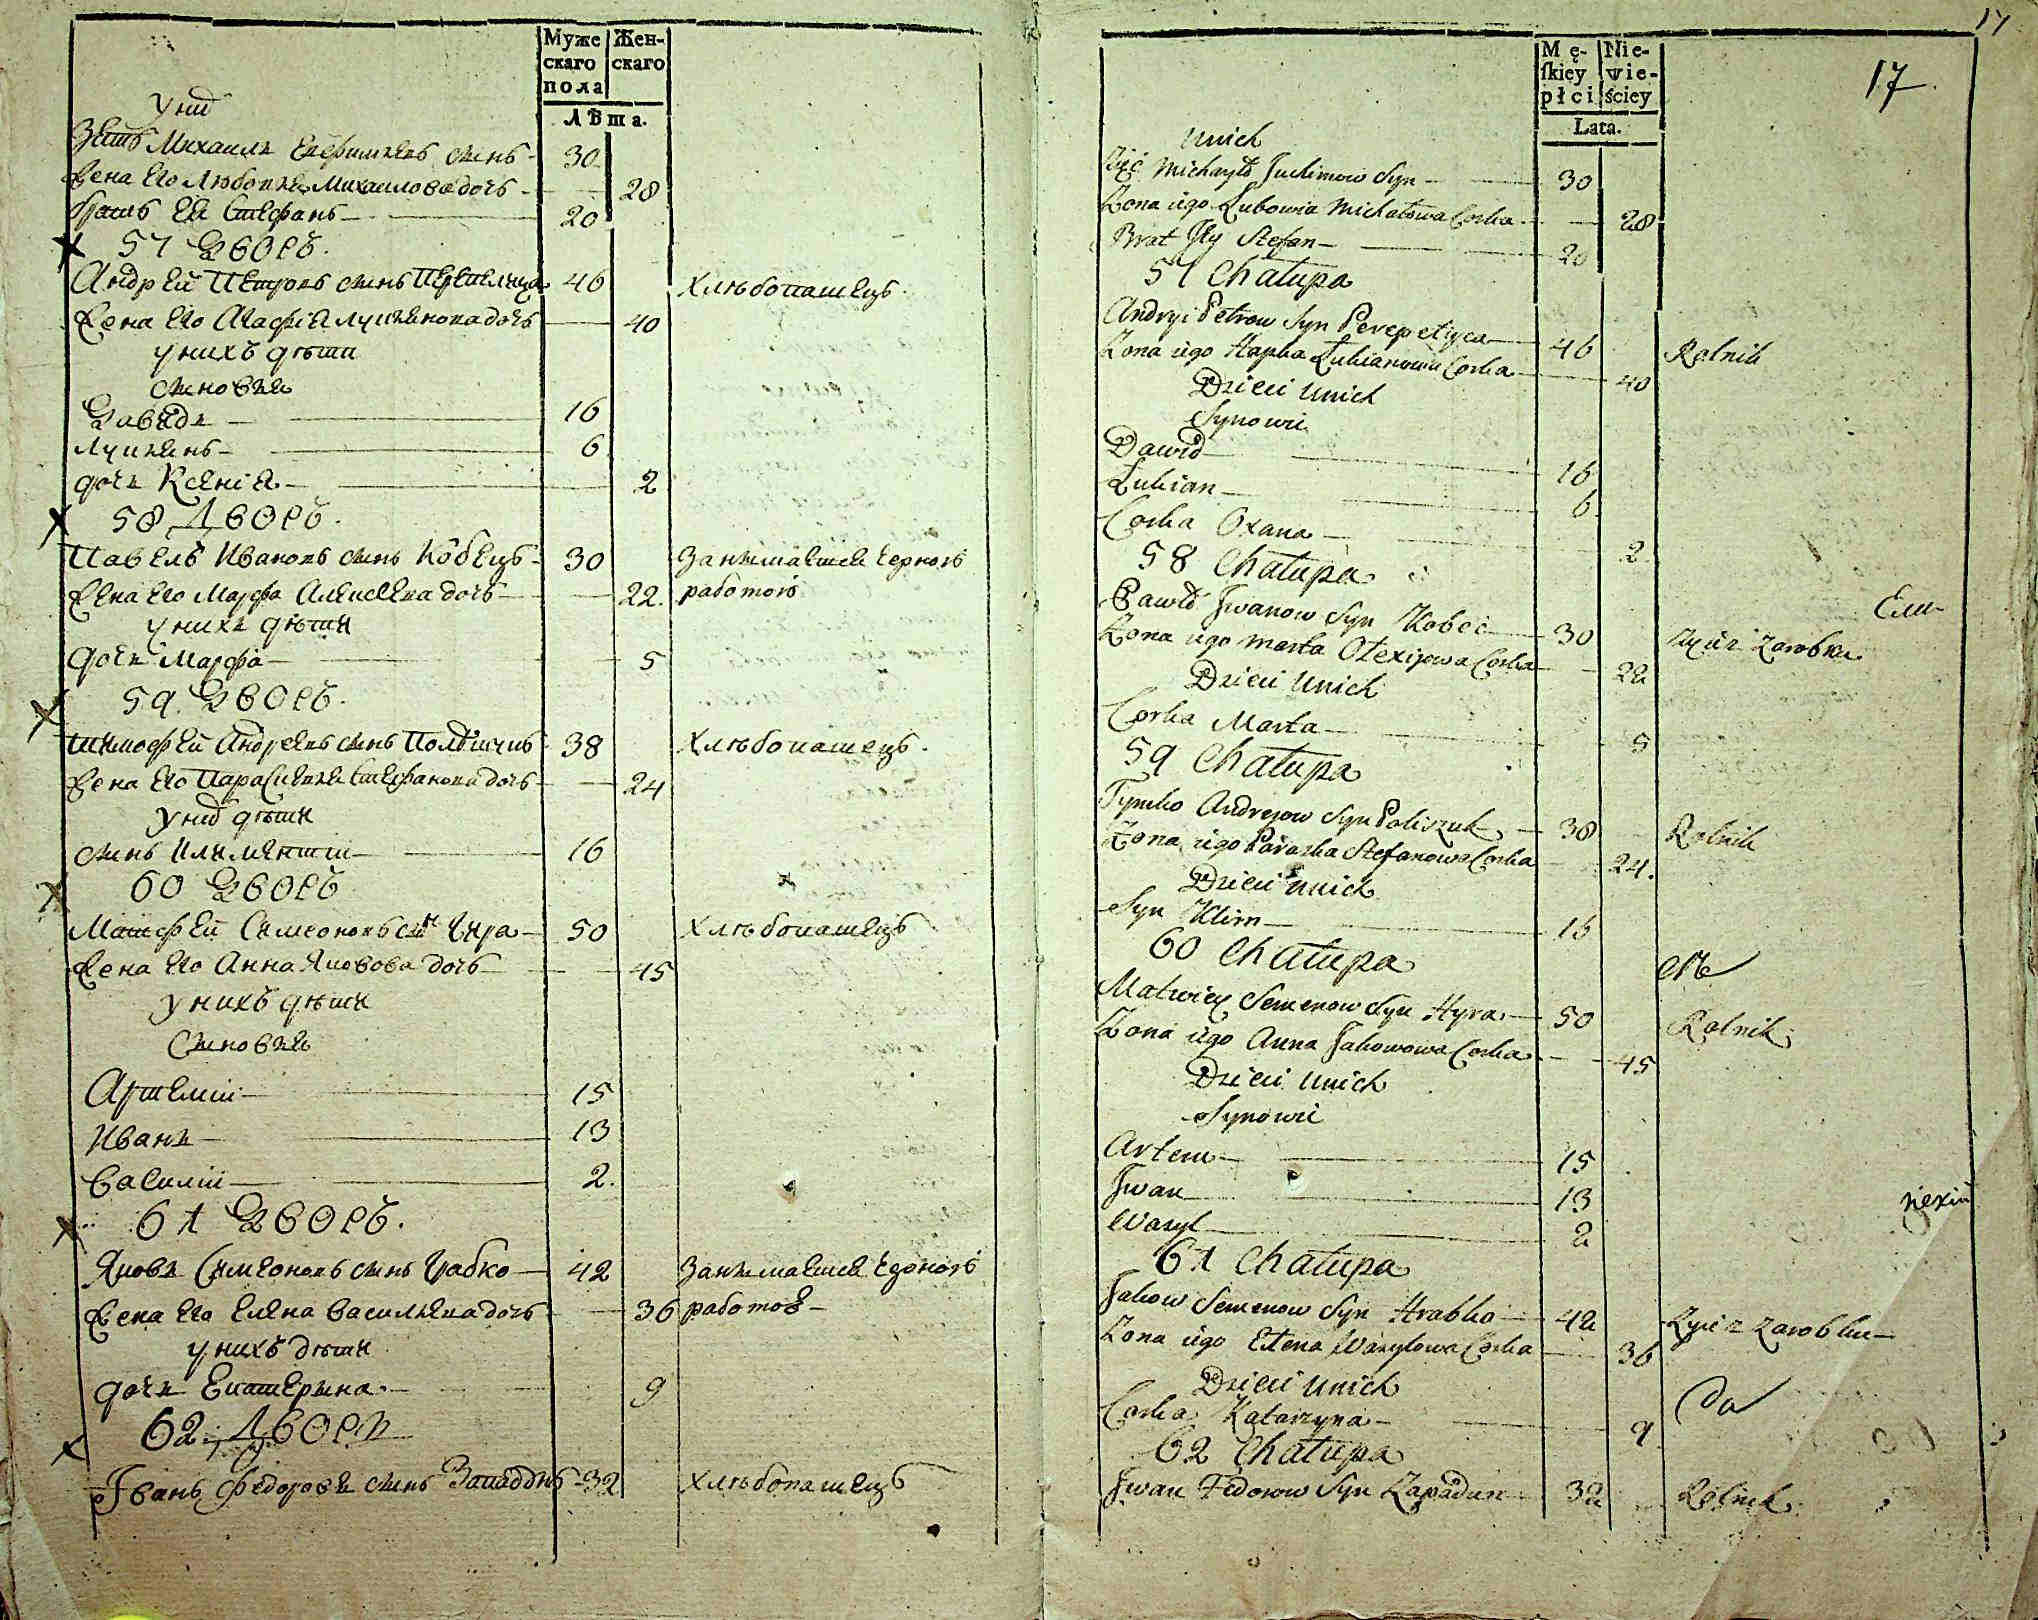 Муже Жен-
скаго скаго
пола
Лѣта.
у них
Зять Михаилъ Евфимиевъ сынъ 30
Жена его Любовъ Михаилова дочь 28
Братъ ей Стефанъ 20
57 Дворъ.
Андрей Петровъ сынъ Перепелица 46 Хлѣбопашецъ.
Жена его Агафія Лукианова дочь 40
у нихъ дѣти
сыновья
Давидъ 16
Лукианъ 6
дочь Ксенія 2
58 Дворъ.
Павелъ Ивановъ сынъ Кобецъ 30 Занимается черною
Жена его Марфа Алексеева дочь 22. работою
у нихъ дѣти
дочь Марфа 5
59 Дворъ.
Тимофей Андреевъ сынъ Полѣщукъ 38 Хлѣбопашецъ.
Жена его Параскевия Стефанова дочь 24
у них дѣти
сынъ Климентий 16
60 Дворъ
Матфей Симеоновъ сынъ Гира 50 Хлѣбопашецъ
Жена его Анна Яковова дочь 45
у нихъ дѣти
Сыновья
Артемий 15
Иванъ 13
Василий 2.
61 Дворъ.
Яковъ Симеоновъ сынъ Грабко 42 Занимается черною
Жена его Елена Васильева дочь 36 работою
у нихъ дѣти
дочь Екатерина 9
62. Дворъ
Іванъ Федоровъ сынъ Западынъ 32 Хлѣбопашецъ
17
17.
Mę- Nie-
ſkiey wie-
płci ściey
Lata.
Unich
Zięć Michayło Juchimow Syn 30
Zona iego Lubowia Michałowa Corka 28
Brat Jey Stefan 20
57 Chałupa
Andryi Petrow Syn Perepelyca 46 Rolnik
Zona iego Hapka Łukianowa Corka 40
Dzieci Unich
Synowie
Dawid 16
Łukian 6
Corka Oxana 2
58 Chałupa
Pawło Jwanow Syn Kobec 30 Zyie z zarobku
Zona iego Marta Ołexijowa Corka 22
Dzieci Unich
Corka Marta 5
59 Chałupa
Tymko Andrejow Syn Poliszuk 38 Rolnik
Zona iego Paraska Stefanowa Corka 24.
Dzieci Unich
Syn Klim 16
60 Chałupa
Matwiey Semenow Syn Hyra 50 Rolnik
Zona iego Anna Jakowowa Corka 45
Dzieci Unich
Synowie
Artem 15
Jwan 13
Wasyl 2
61 Chałupa
Jakow Semenow Syn Hrabko 42 Zyie z zarobku
Zona iego Ełena Wasylowa Corka 36
Dzieci Unich
Corka Katarzyna 9
62 Chałupa
Jwan Fedorow Syn Zapadun 32 Rolnik